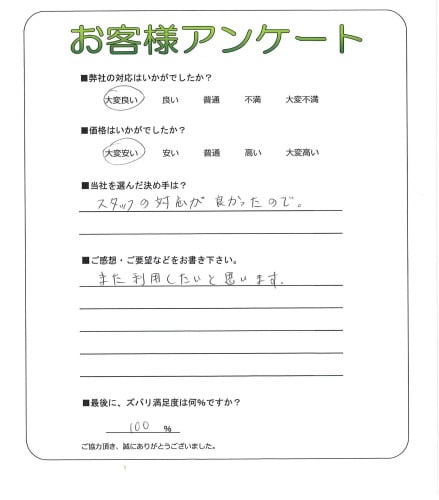 お客様アンケート
■弊社の対応はいかがでしたか？
大変良い 良い 普通 不満 大変不満
■価格はいかがでしたか？
大変安い 安い 普通 高い 大変高い
■当社を選んだ決め手は？
スタッフの対応が良かったので。
■ご感想・ご要望などをお書き下さい。
また利用したいと思います.
■最後に、ズバリ満足度は何％ですか？
100 ％
ご協力頂き、誠にありがとうございました。